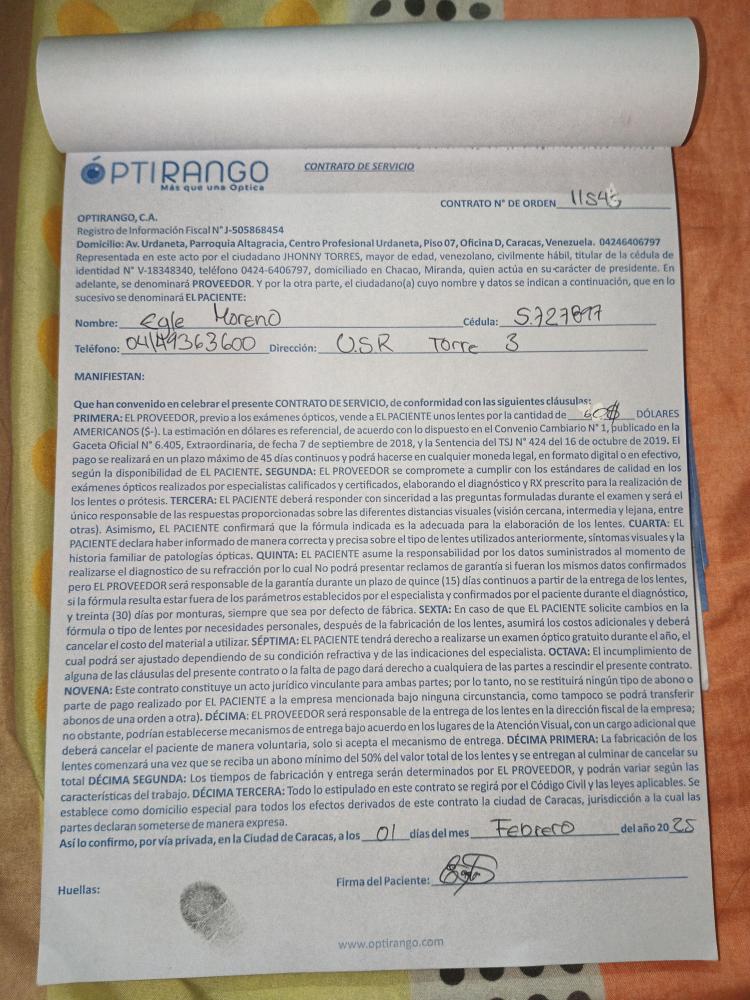 ÓPTIRANGO
Más que una Optica
CONTRATO DE SERVICIO
CONTRATO N° DE ORDEN
OPTIRANGO, C.A.
Registro de Información Fiscal N° J-505868454
Domicilio: Av. Urdaneta, Parroquia Altagracia, Centro Profesional Urdaneta, Piso 07, Oficina D, Caracas, Venezuela. 04246406797
Representada en este acto por el ciudadano JHONNY TORRES, mayor de edad, venezolano, civilmente hábil, titular de la cédula de
identidad N° V-18348340, teléfono 0424-6406797, domiciliado en Chacao, Miranda, quien actúa en su carácter de presidente. En
adelante, se denominará PROVEEDOR. Y por la otra parte, el ciudadano(a) cuyo nombre y datos se indican a continuación, que en lo
sucesivo se denominará EL PACIENTE:
Nombre: Egle Moreno Cédula: 5.727897
Teléfono: 04149363600 Dirección: U.S.R Torre 3
MANIFIESTAN:
Que han convenido en celebrar el presente CONTRATO DE SERVICIO, de conformidad con las siguientes cláusulas:
PRIMERA: EL PROVEEDOR, previo a los exámenes ópticos, vende a EL PACIENTE unos lentes por la cantidad de 60$ DÓLARES
AMERICANOS ($-). La estimación en dólares es referencial, de acuerdo con lo dispuesto en el Convenio Cambiario N° 1, publicado en la
Gaceta Oficial N° 6.405, Extraordinaria, de fecha 7 de septiembre de 2018, y la Sentencia del TSJ N° 424 del 16 de octubre de 2019. El
pago se realizará en un plazo máximo de 45 días continuos y podrá hacerse en cualquier moneda legal, en formato digital o en efectivo,
según la disponibilidad de EL PACIENTE. SEGUNDA: EL PROVEEDOR se compromete a cumplir con los estándares de calidad en los
exámenes ópticos realizados por especialistas calificados y certificados, elaborando el diagnóstico y RX prescrito para la realización de
los lentes o prótesis. TERCERA: EL PACIENTE deberá responder con sinceridad a las preguntas formuladas durante el examen y será el
único responsable de las respuestas proporcionadas sobre las diferentes distancias visuales (visión cercana, intermedia y lejana, entre
otras). Asimismo, EL PACIENTE confirmará que la fórmula indicada es la adecuada para la elaboración de los lentes. CUARTA: EL
PACIENTE declara haber informado de manera correcta y precisa sobre el tipo de lentes utilizados anteriormente, síntomas visuales y la
historia familiar de patologías ópticas. QUINTA: EL PACIENTE asume la responsabilidad por los datos suministrados al momento de
realizarse el diagnostico de su refracción por lo cual No podrá presentar reclamos de garantía si fueran los mismos datos confirmados
pero EL PROVEEDOR será responsable de la garantía durante un plazo de quince (15) días continuos a partir de la entrega de los lentes,
si la fórmula resulta estar fuera de los parámetros establecidos por el especialista y confirmados por el paciente durante el diagnóstico,
y treinta (30) días por monturas, siempre que sea por defecto de fábrica. SEXTA: En caso de que EL PACIENTE solicite cambios en la
fórmula o tipo de lentes por necesidades personales, después de la fabricación de los lentes, asumirá los costos adicionales y deberá
cancelar el costo del material a utilizar. SÉPTIMA: EL PACIENTE tendrá derecho a realizarse un examen óptico gratuito durante el año, el
cual podrá ser ajustado dependiendo de su condición refractiva y de las indicaciones del especialista. OCTAVA: El incumplimiento de
alguna de las cláusulas del presente contrato o la falta de pago dará derecho a cualquiera de las partes a rescindir el presente contrato.
NOVENA: Este contrato constituye un acto jurídico vinculante para ambas partes; por lo tanto, no se restituirá ningún tipo de abono o
parte de pago realizado por EL PACIENTE a la empresa mencionada bajo ninguna circunstancia, como tampoco se podrá transferir
abonos de una orden a otra). DÉCIMA: EL PROVEEDOR será responsable de la entrega de los lentes en la dirección fiscal de la empresa;
no obstante, podrían establecerse mecanismos de entrega bajo acuerdo en los lugares de la Atención Visual, con un cargo adicional que
deberá cancelar el paciente de manera voluntaria, solo si acepta el mecanismo de entrega. DÉCIMA PRIMERA: La fabricación de los
lentes comenzará una vez que se reciba un abono mínimo del 50% del valor total de los lentes y se entregan al culminar de cancelar su
total DÉCIMA SEGUNDA: Los tiempos de fabricación y entrega serán determinados por EL PROVEEDOR, y podrán variar según las
características del trabajo. DÉCIMA TERCERA: Todo lo estipulado en este contrato se regirá por el Código Civil y las leyes aplicables. Se
establece como domicilio especial para todos los efectos derivados de este contrato la ciudad de Caracas, jurisdicción a la cual las
partes declaran someterse de manera expresa.
Así lo confirmo, por vía privada, en la Ciudad de Caracas, a los 01 días del mes Febrero del año 20 25
Firma del Paciente:
Huellas:
www.optirango.com